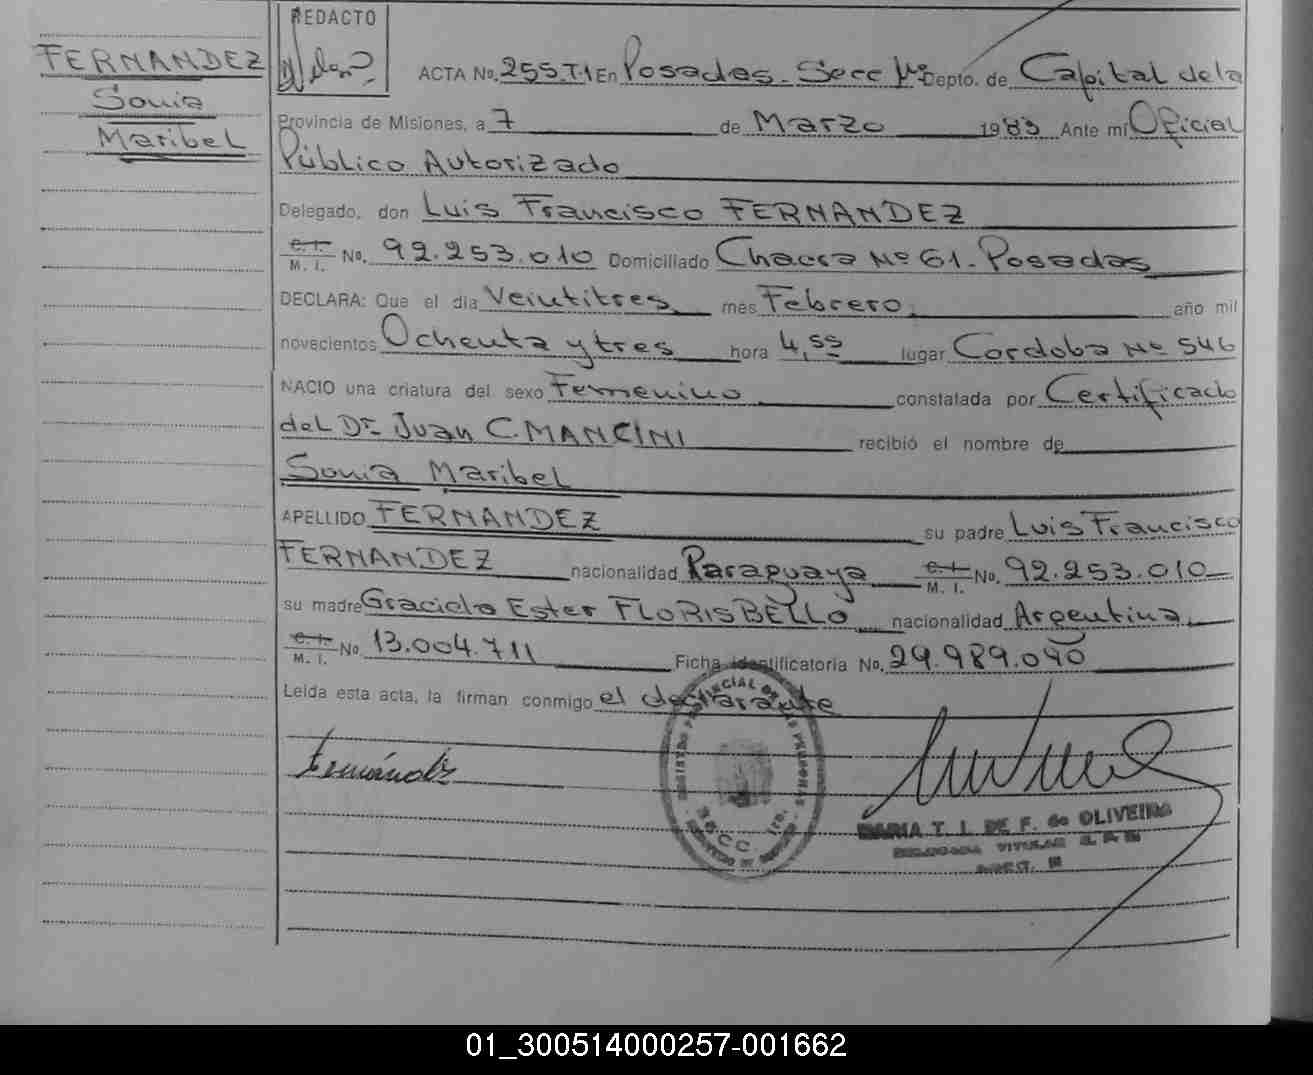 FERNANDEZ
Sonia
Maribel
REDACTO
ACTA No. 255.T1 En Posadas. Secc Depto. de Capital de la
Provincia de Misiones, a 7 de Marzo 1983 Ante mí Oficial
Público Autorizado
Delegado, don Luis Francisco FERNANDEZ
C.I. M. I. No. 92.253.010 Domiciliado Chacra Nº 61. Posadas
DECLARA: Que el día Veintitres mes Febrero año mil
novecientos Ochenta y tres hora 4,55 lugar Cordoba Nº 546
NACIO una criatura del sexo Femenino constatada por Certificado
del Dr. Juan C. MANCINI recibió el nombre de
Sonia Maribel
APELLIDO FERNANDEZ su padre Luis Francisco
FERNANDEZ nacionalidad Paraguaya C.I. M. I. No. 92.253.010
su madre Graciela Ester FLORISBELLO nacionalidad Argentina
C.I. M. I. No. 13.004.711 Ficha identificatoria No. 29.989.090
Leída esta acta, la firman conmigo el declarante
Fernández
REGISTRO PROVINCIAL DE LAS PERSONAS
MARIA T. I. DE F. de OLIVEIRA
DELEGADA TITULAR
01_300514000257-001662